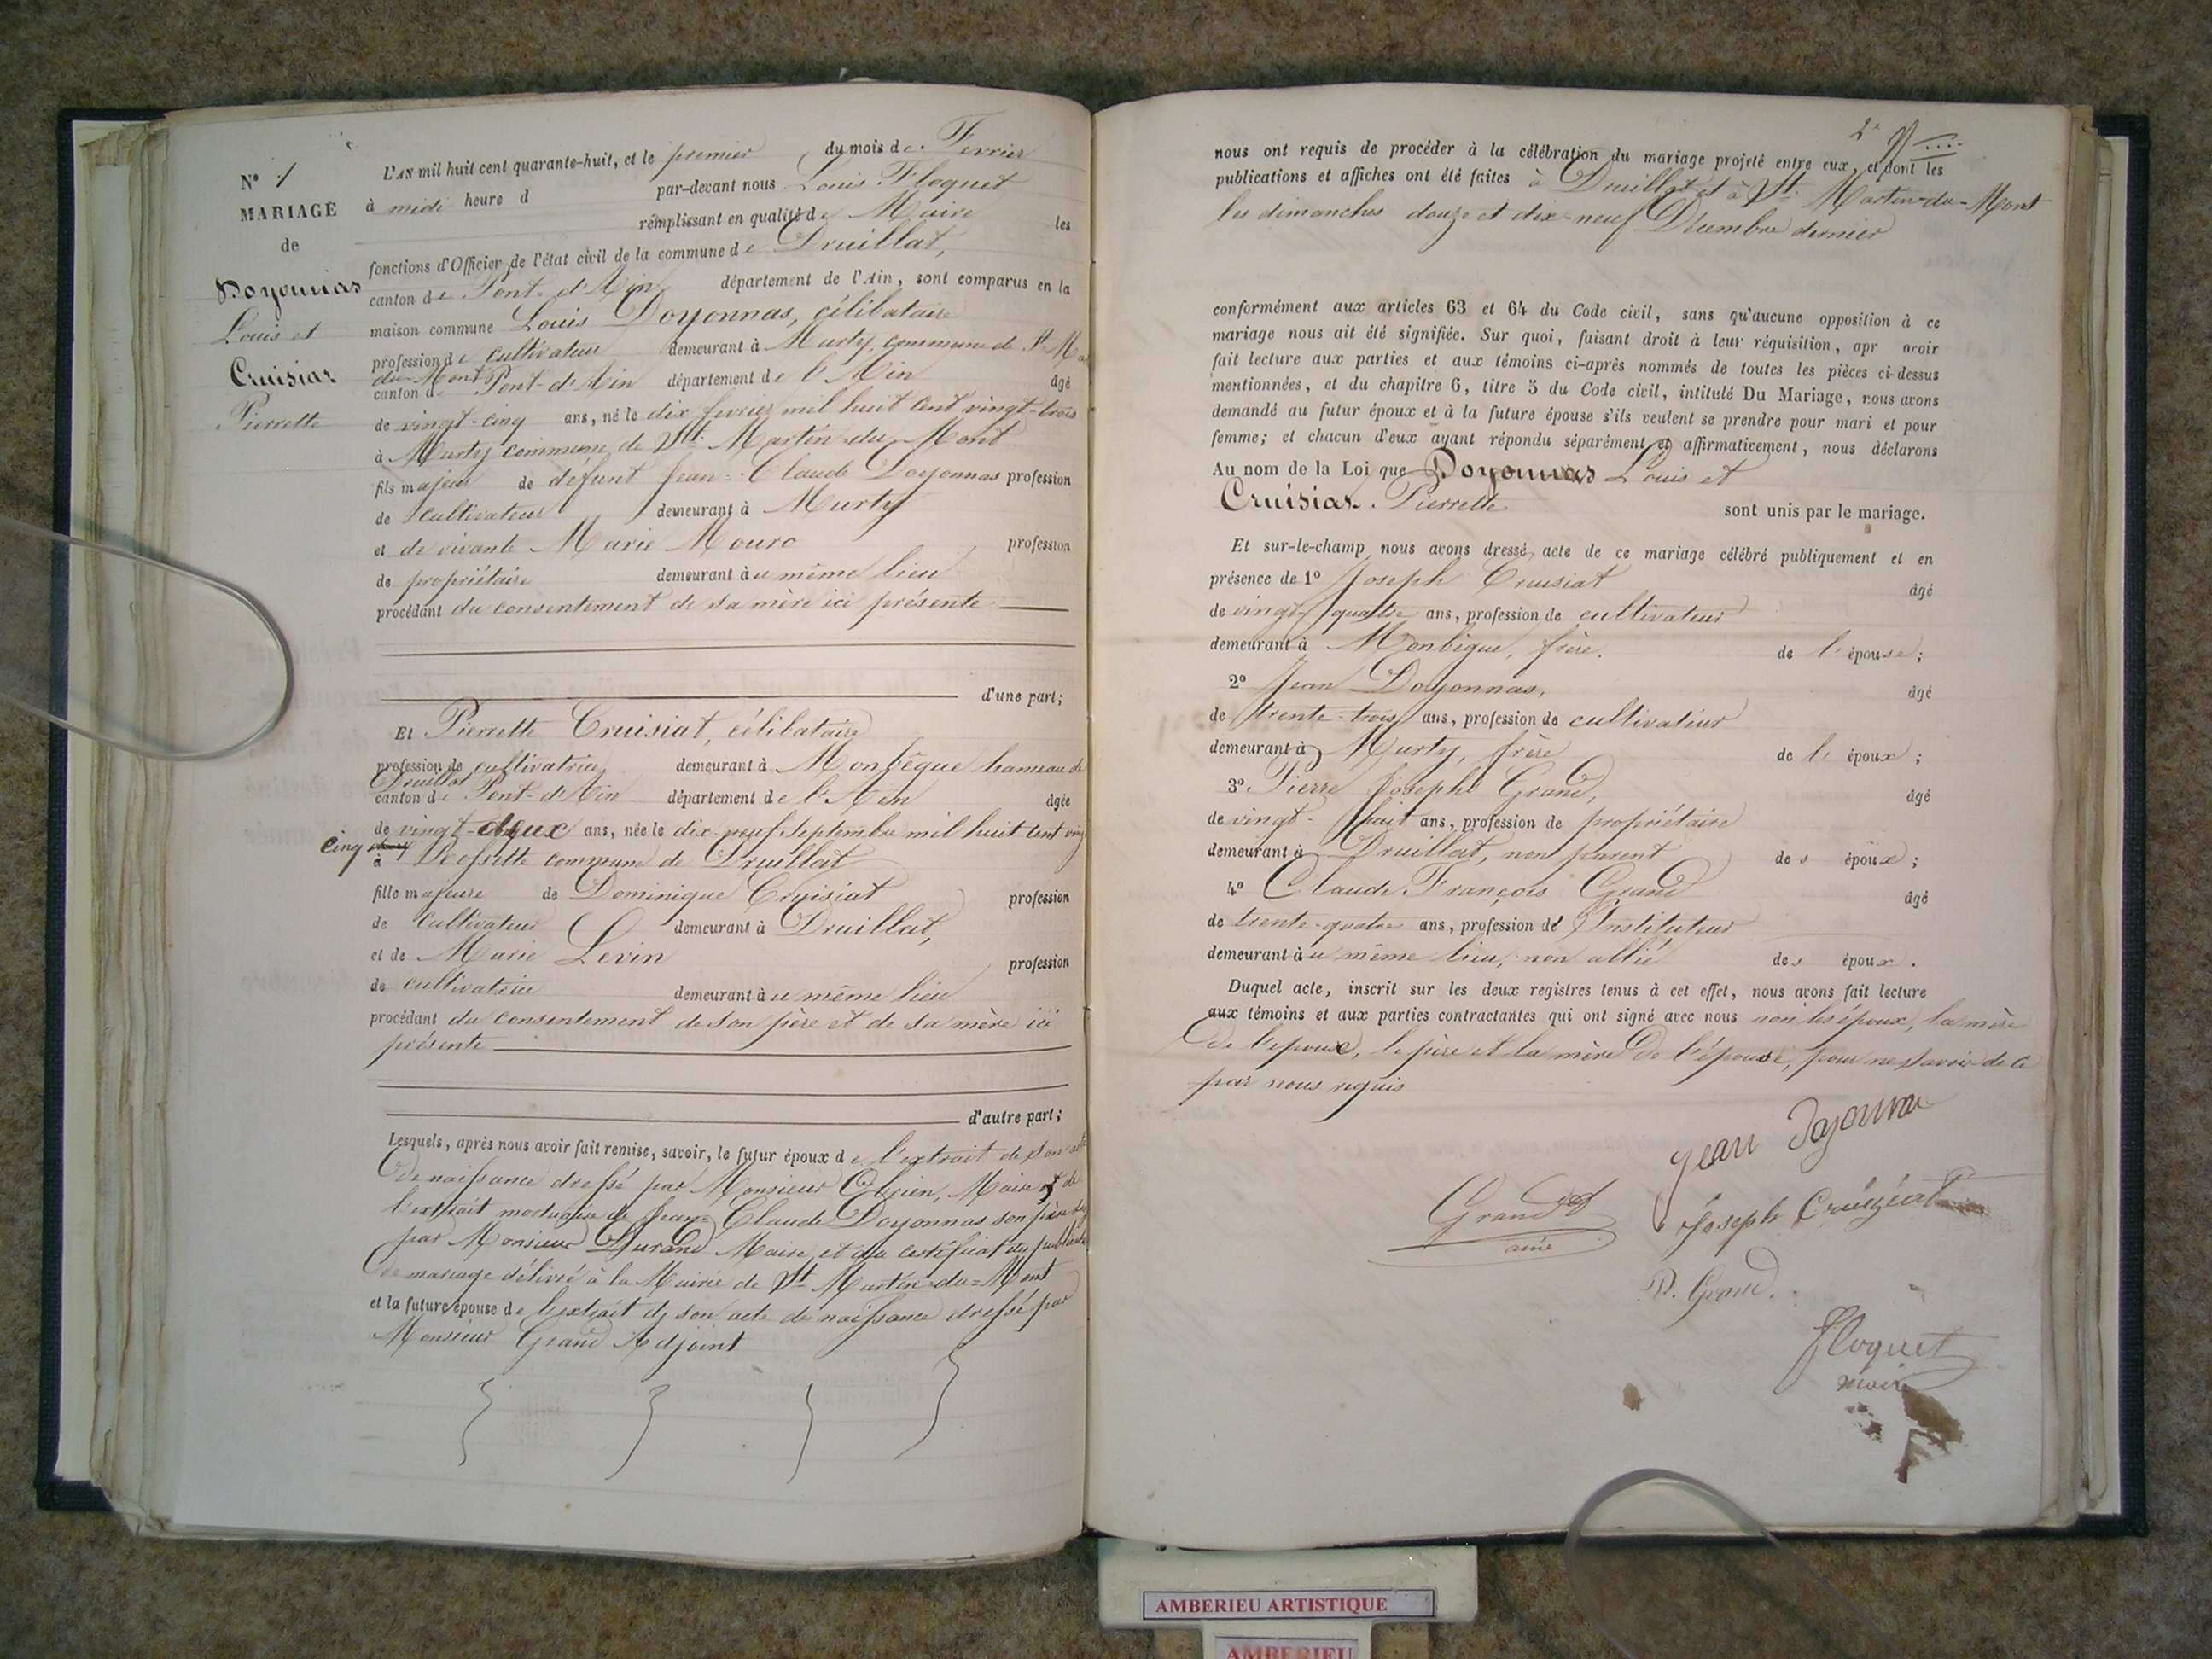 N° 1
MARIAGE
de
Doyonnas
Louis et
Cruisiat
Pierrette
L'AN mil huit cent quarante-huit, et le premier du mois de Fevrier
à midi heure d par-devant nous Louis Floquet
remplissant en qualité de Maire les
fonctions d'Officier de l'état civil de la commune de Druillat,
canton de Pont-d'Ain département de l'Ain, sont comparus en la
maison commune Louis Doyonnas, célibataire
profession de cultivateur demeurant à Murty, commune de St-Ma
du-Mont
canton de Pont-d'Ain département de l'Ain âgé
de vingt-cinq ans, né le dix fevrier mil huit cent vingt-trois
à Murty commune de St. Martin-du-Mont
fils majeur de défunt Jean-Claude Doyonnas profession
de cultivateur demeurant à Murty
et de vivante Marie Mouro profession
de propriétaire demeurant à u même lieu
procédant du consentement de sa mère ici présente
d'une part;
Et Pierrette Cruisiat, célibataire
profession de cultivatrice demeurant à Monbègue hameau de
Druillat
canton de Pont-d'Ain département de l'Ain âgée
de vingt-deux ans, née le dix-neuf septembre mil huit cent ving
cinq
à commune de Druillat
fille majeure de Dominique Cruisiat profession
de cultivateur demeurant à Druillat,
et de Marie Levin profession
de cultivatrice demeurant à u même lieu
procédant du consentement de son père et de sa mère ici
présente
d'autre part;
Lesquels, après nous avoir fait remise, savoir, le futur époux d e l'extrait de son
de naissance dressé par Monsieur Maire et de
l'extrait mortuaire de Jean-Claude Doyonnas son père
par Monsieur Durand Maire et du certificat des
de mariage délivré à la Mairie de St Martin-du-Mont
et la future épouse de l'extrait de son acte de naissance dressé par
Monsieur Grand Adjoint
2e
nous ont requis de procéder à la célébration du mariage projeté entre eux, et dont les
publications et affiches ont été faites à Druillat et à St. Martin-du-Mont
les dimanches douze et dix-neuf Décembre dernier
conformément aux articles 63 et 64 du Code civil, sans qu'aucune opposition à ce
mariage nous ait été signifiée. Sur quoi, faisant droit à leur réquisition, apr avoir
fait lecture aux parties et aux témoins ci-après nommés de toutes les pièces ci-dessus
mentionnées, et du chapitre 6, titre 5 du Code civil, intitulé Du Mariage, nous avons
demandé au futur époux et à la future épouse s'ils veulent se prendre pour mari et pour
femme; et chacun d'eux ayant répondu séparément et affirmativement, nous déclarons
Au nom de la Loi que Doyonnas Louis et
Cruisiat Pierrette sont unis par le mariage.
Et sur-le-champ nous avons dressé acte de ce mariage célébré publiquement et en
présence de 1° Joseph Cruisiat âgé
de vingt-quatre ans, profession de cultivateur
demeurant à Monbègue, frère. de l'épouse;
2° Jean Doyonnas, âgé
de trente-trois ans, profession de cultivateur
demeurant à Murty, frère de l' époux;
3° Pierre Joseph Grand, âgé
de vingt-huit ans, profession de propriétaire
demeurant à Druillat, non parent des époux;
4° Claude François Grand âgé
de trente-quatre ans, profession de Instituteur
demeurant à u même lieu, non allié des époux.
Duquel acte, inscrit sur les deux registres tenus à cet effet, nous avons fait lecture
aux témoins et aux parties contractantes qui ont signé avec nous non les époux, la mère
de l'epoux, le père et la mère de l'épouse, pour ne savoir de ce
par nous requis
Jean
Grand
ainé
Joseph Cruiziat
P. Grand.
Floquet
maire
AMBERIEU ARTISTIQUE
AMBERIEU